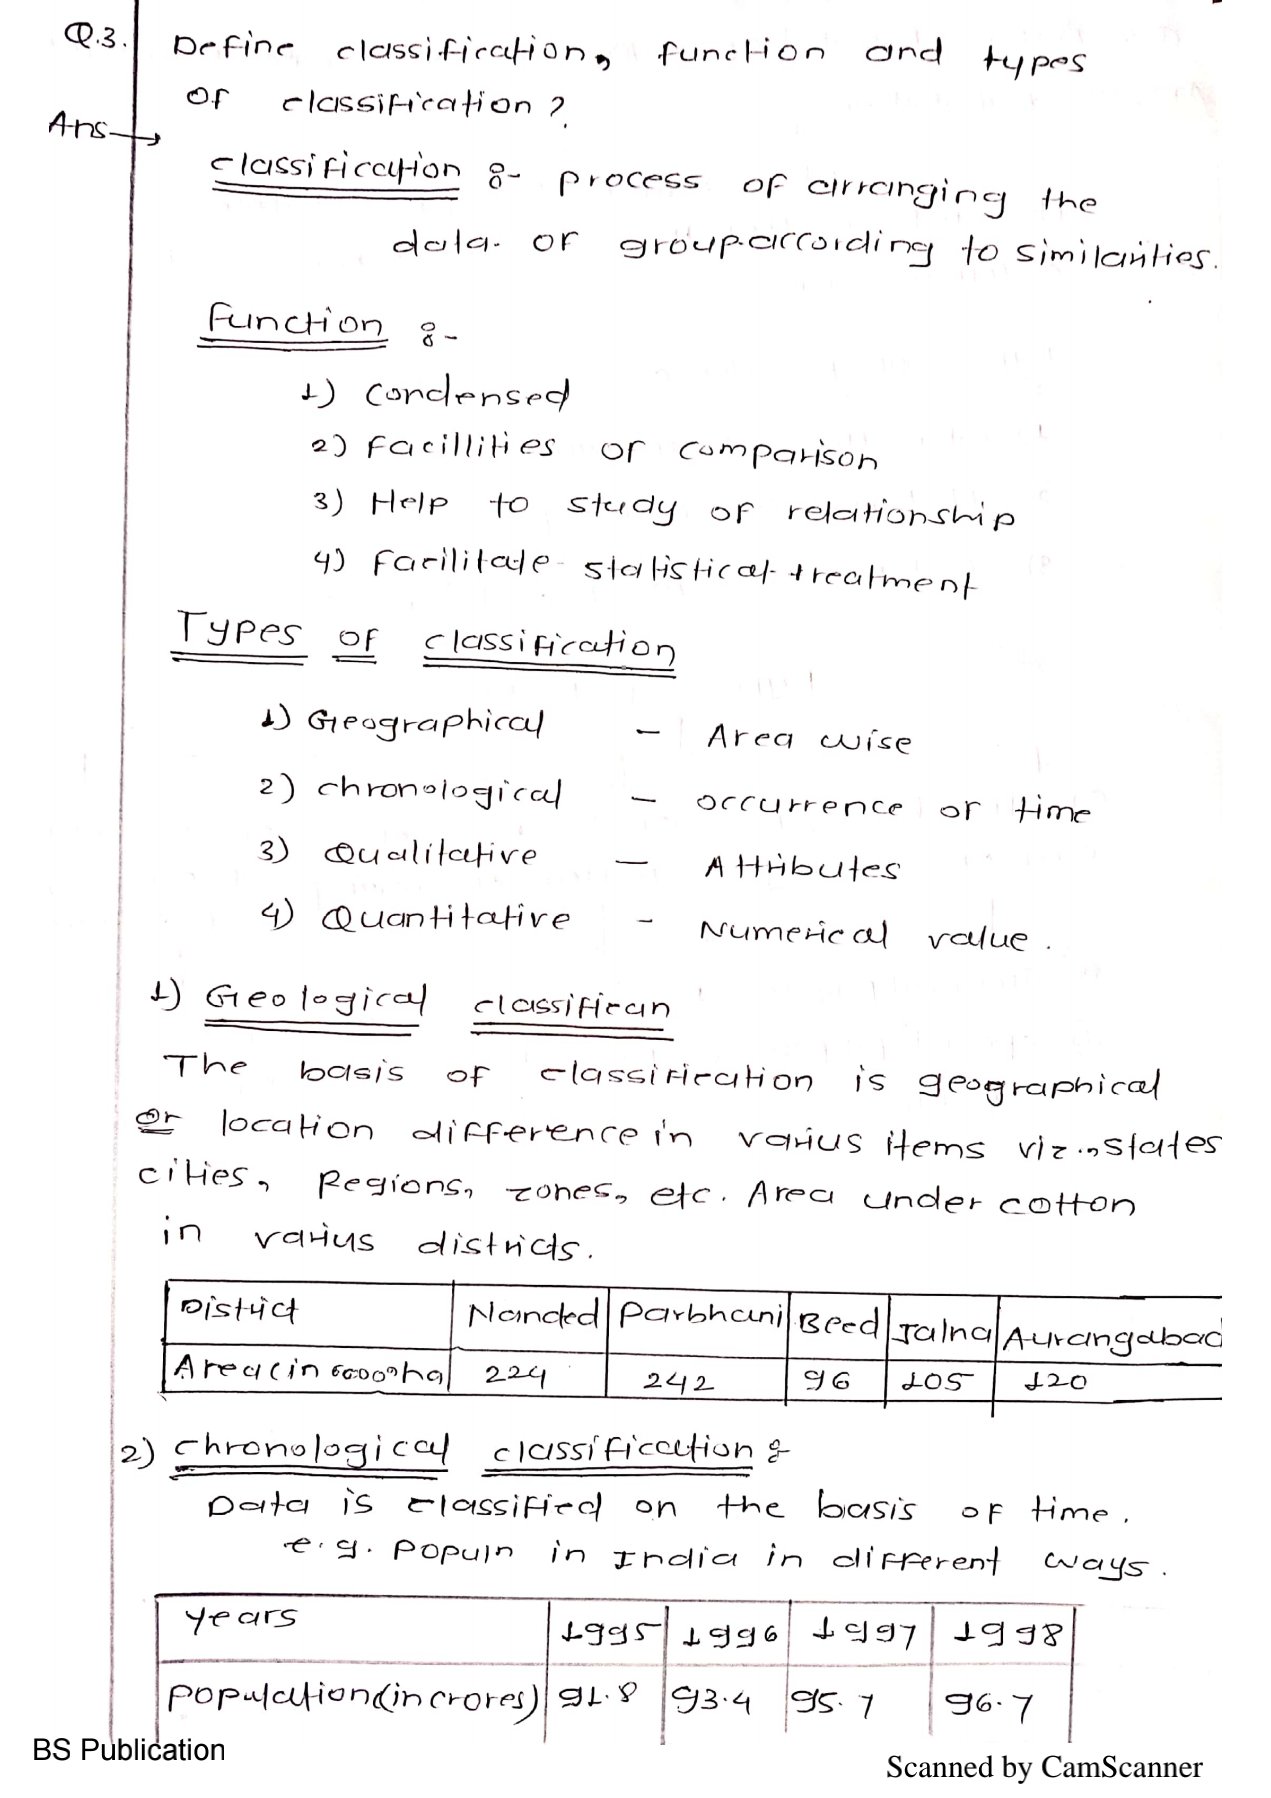 Q.3. Define classification, function and types
of classification?
Ans→
classification :- process of arranging the
data or group according to similarities.
Function :-
1) Condensed
2) Facillities of comparison
3) Help to study of relationship
4) Facilitate statistical treatment
Types of classification
1) Geographical - Area wise
2) chronological - occurrence or time
3) Qualitative - Attributes
4) Quantitative - Numerical value.
1) Geological classifican
The basis of classification is geographical
or location difference in varius items viz., states
cities, Regions, zones, etc. Area under cotton
in varius districts.
District Nanded Parbhani Beed Jalna Aurangabad
Area (in ha) 224 242 96 105 120
2) chronological classification :
Data is classified on the basis of time.
e.g. Populn in India in different ways.
years 1995 1996 1997 1998
population (in crores) 91.8 93.4 95.7 96.7
BS Publication
Scanned by CamScanner